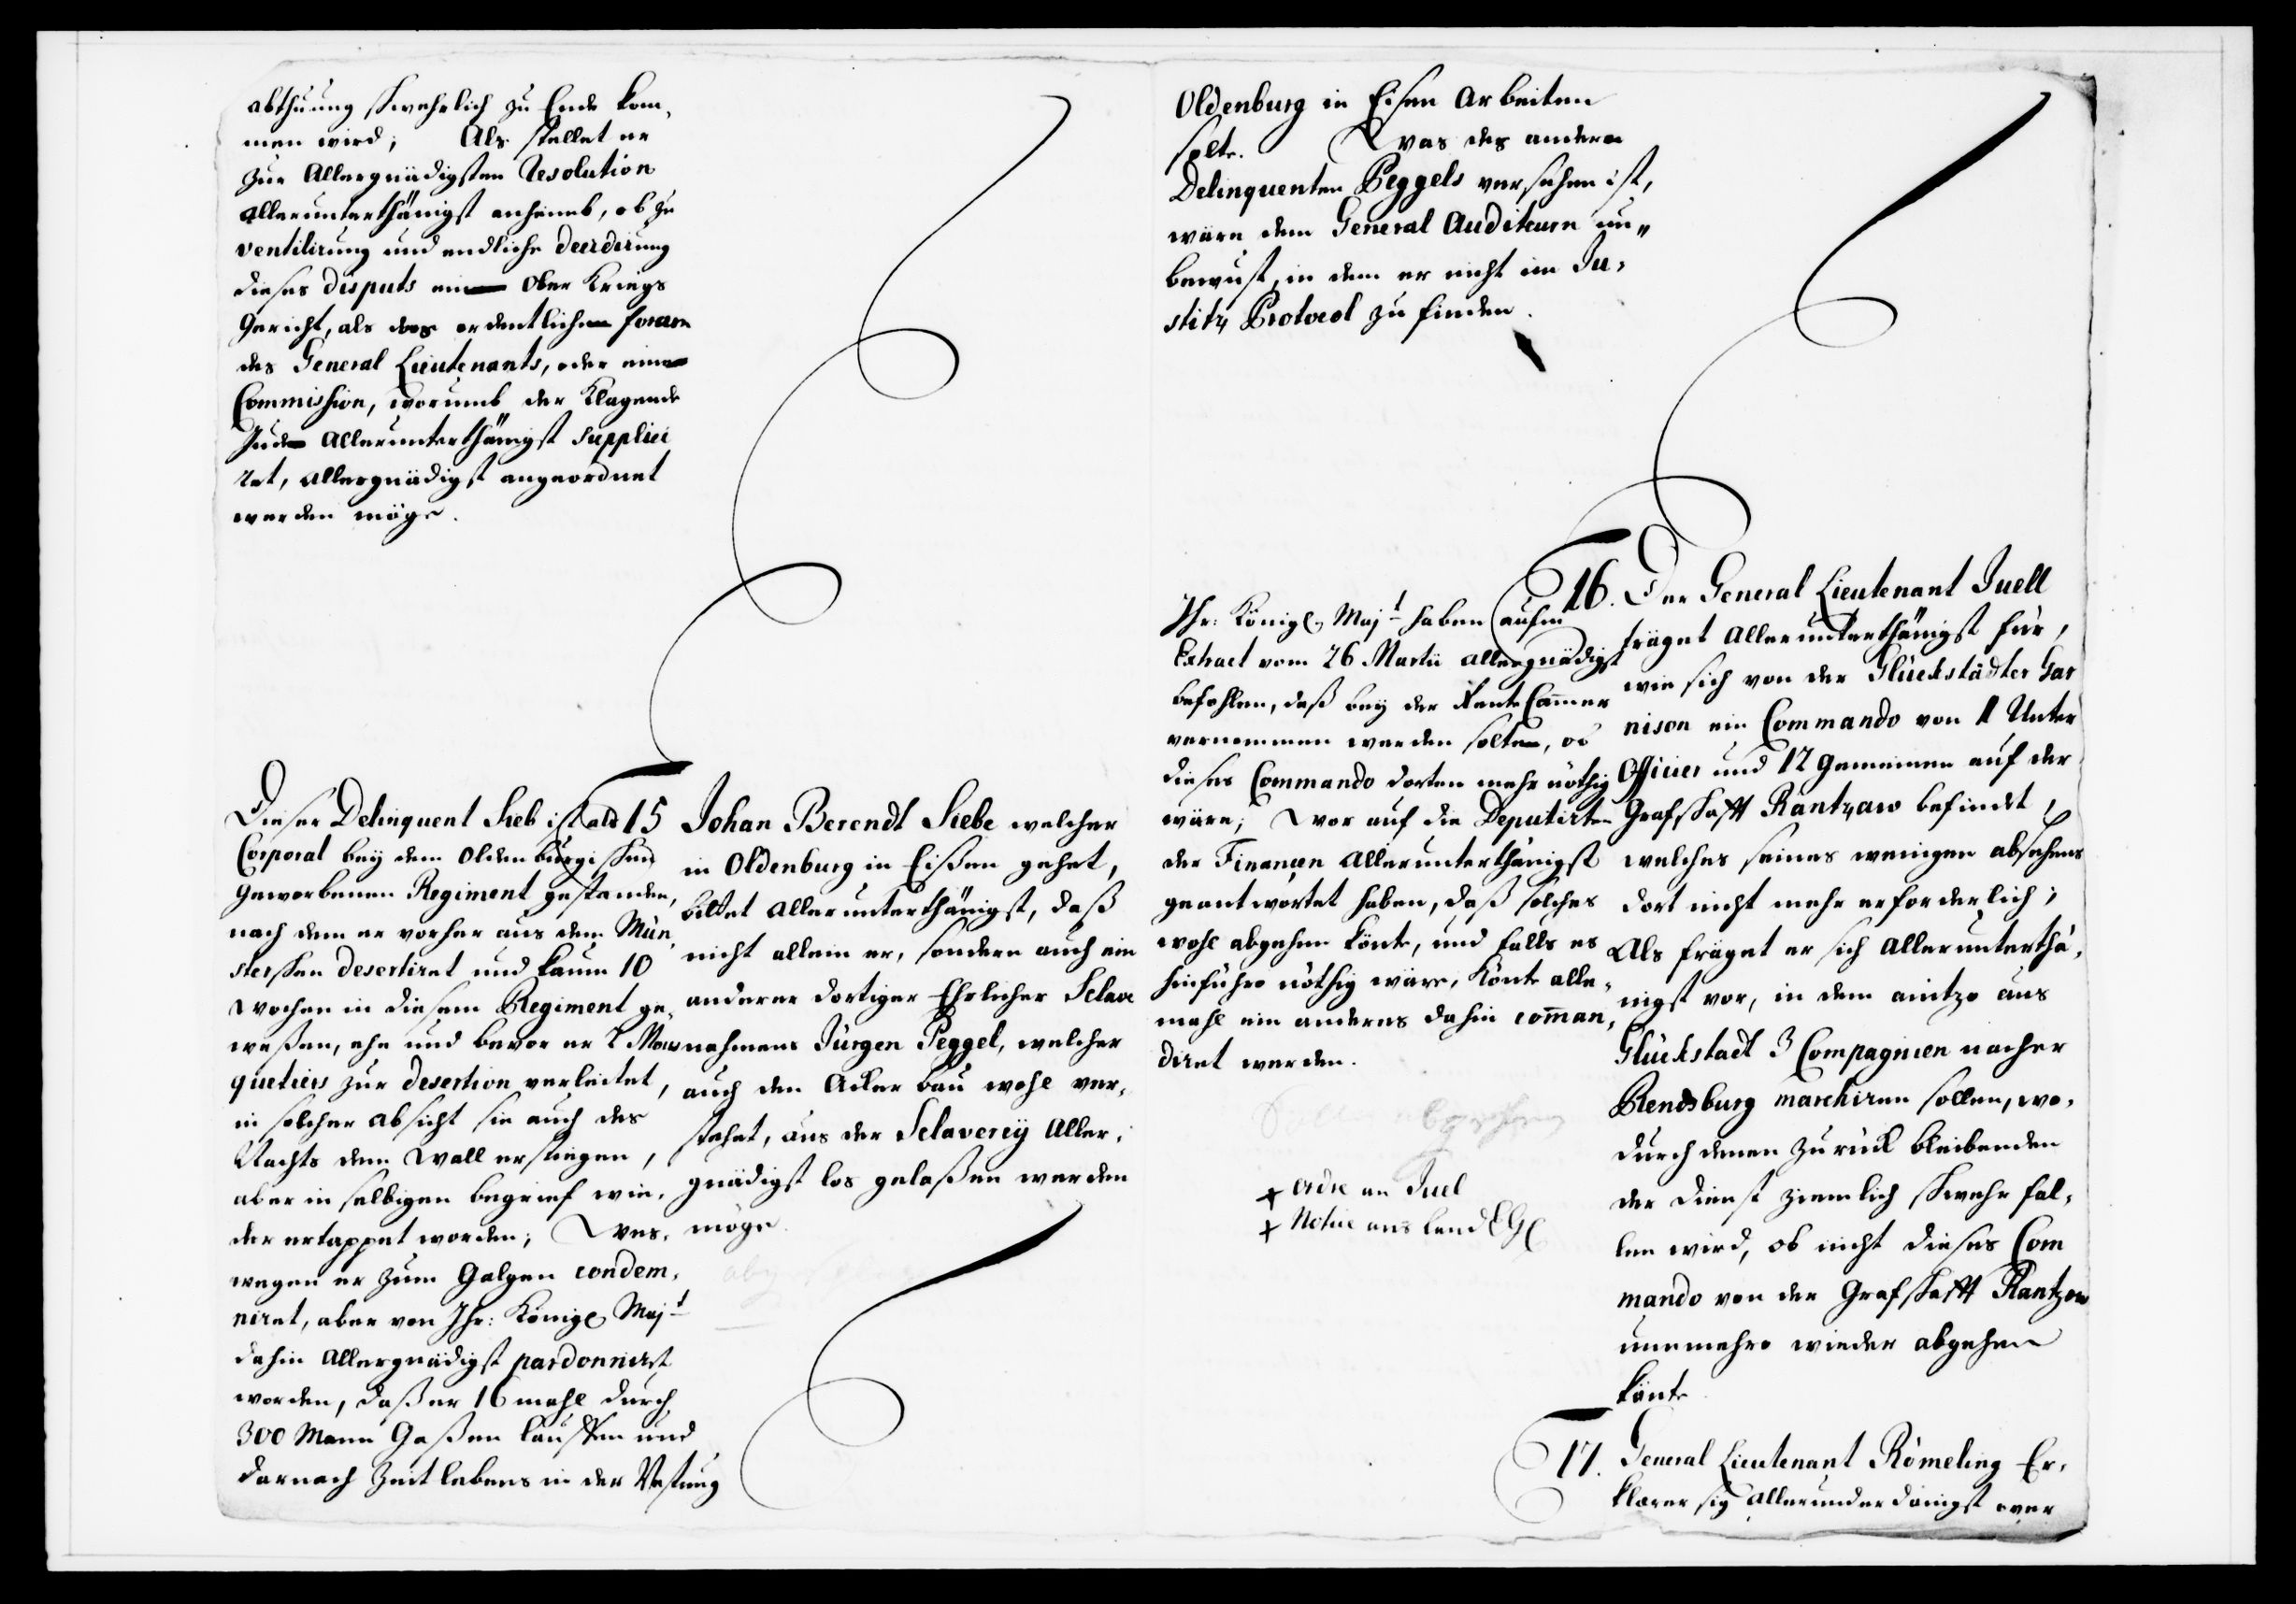 abthuung schwehrlich zu Ende kom,
men wird; Als stellet er
zur Allergnädigsten Resolution
allerunterthänigst anheimb, ob zu
ventilirung und endliche decidirung
dieses disputs ein Ober Kriegs
Gericht, als das ordentliche forum
des General Lieutenants, oder eine
Commission, worumb der Klagende
Jude Allerunterthänigst supplici
ret, allergnädigst angeordnet
werden möge.
Dieser Delinquent Sieb ist als
Corporal bey dem Oldenburgischen
Geworbenen Regiment gestanden,
nach dem er vorher aus dem Mün,
sterschen desertiret und kaum 10
Wochen in diesem Regiment ge,
weßen, ehe und bevor er 2 Mous
quetiers zur desertion verleitet,
in solcher absicht sie auch des
Nachts den Wall erstiegen,
aber in selbigen begrief wie,
der ertappet worden; Wes,
wegen er zum Galgen condem,
niret, aber von Ihr: Königl Majt
dahin Allergnädigst pardonniret
worden, daß er 16 mahl durch
300 Mann Gaßen lauffen und
darnach Zeit lebens in der Vestung
15 Johan Berendt Siebe welcher
in Oldenburg in Eißen gehet,
bittet allerunterthänigst, daß
nicht allein er, sondern auch ein
anderer dortiger Ehrlicher Sclave
nahmens Jürgen Peggel, welcher
auch den Acker bau wohl ver,
stehet, aus der Sclaverey Aller,
gnädigst los gelaßen werden
möge.
Oldenburg in Eisen Arbeiten
solte. Was des andern
Delinquenten Peggels versehen ist,
wäre dem General Auditeurn un,,
bewust, in dem er nicht im Ju,
stitz Protocol zu finden.
Ihr: Königl Majt haben aufm
Extract vom 26 Martii allergnädigst
befohlen, daß bey der Rente Cam̄er
vernommen werden solte, ob
dieses Commando dorten mehr nöthig
wäre; Wor auf die Deputirten
der Financen Allerunterthänigst
geantwortet haben, daß solches
wohl abgehen könte, und falls es
hinführo nöthig wäre, Könte alle,
mahl ein anderes dahin com̄an,
diret werden.
+ Ordre an Juel
+ Notice ans Land
16. Der General Lieutenant Juell
träget Allerunterthänigst für,
wie sich von der Glückstädter Gar
nison ein Commando von 1 Unter
Officier und 12 Gemeinen auf der
Grafschafft Rantzaw befindet,
welches seines wenigen absehens
dort nicht mehr erforderlich;
Als fräget er sich Allerunterthä,
nigst vor, in dem anitzo aus
Glückstadt 3 Compagnien nacher
Rendsburg marchiren sollen, wo,
durch denen zurück bleibenden
der dienst ziemlich schwehr fal,
len wird, ob nicht dieses Com
mando von der Grafschafft Rantzow
nunmehro wieder abgehen
könte
17. General Lieutenant Römeling Er,
klærer sig allerunderdanigst over